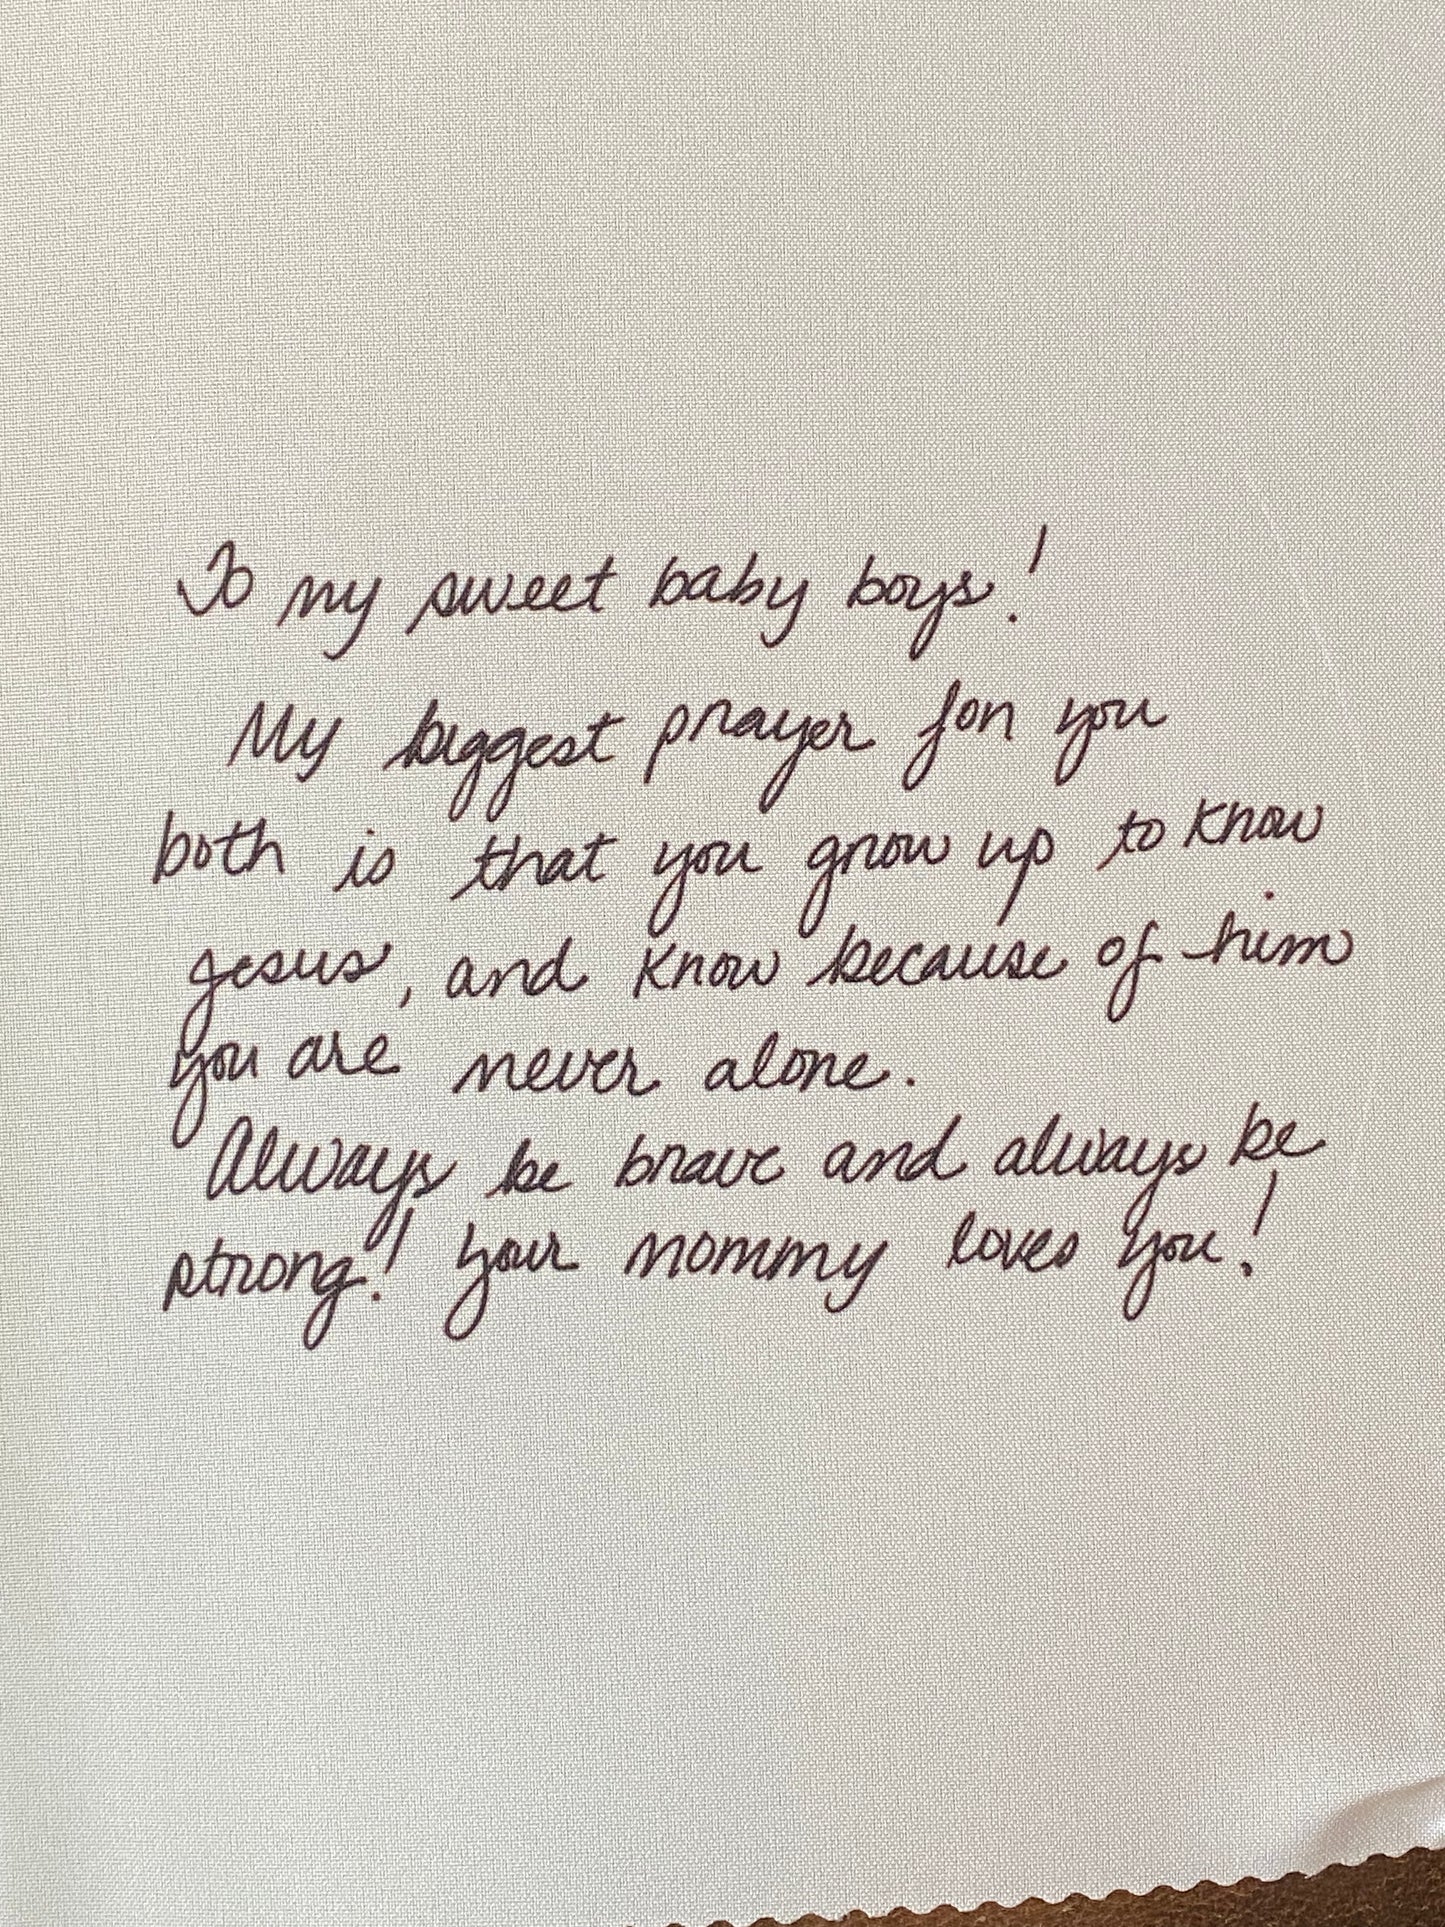 To my sweet baby boys!
My biggest prayer for you
both is that you grow up to know
Jesus, and know because of him
you are never alone.
Always be brave and always be
strong! Your mommy loves you!